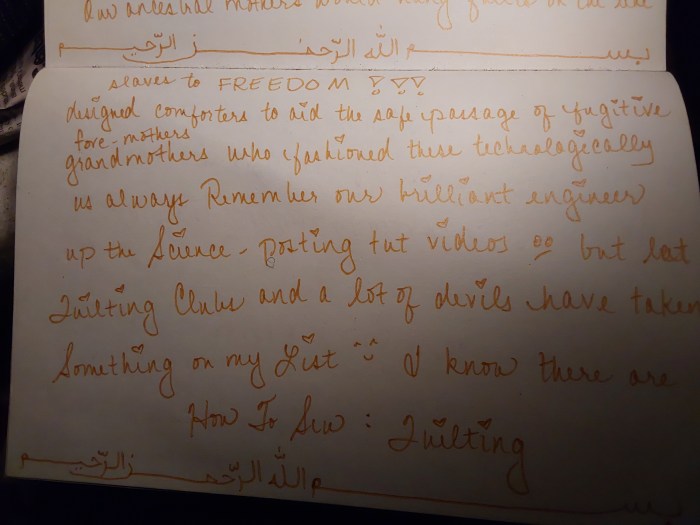 Our ancestral mothers would hang quilts on the line
بسم الله الرّحمن الرّحيم
slaves to FREEDOM !!!
designed comforters to aid the safe passage of fugitive
fore-mothers
grandmothers who fashioned these technologically
us always Remember our brilliant engineer
up the Science - posting tut videos but let
Quilting Clubs and a lot of devils have taken
Something on my List ^^ I know there are
How To Sew : Quilting
بسم الله الرّحمن الرّحيم